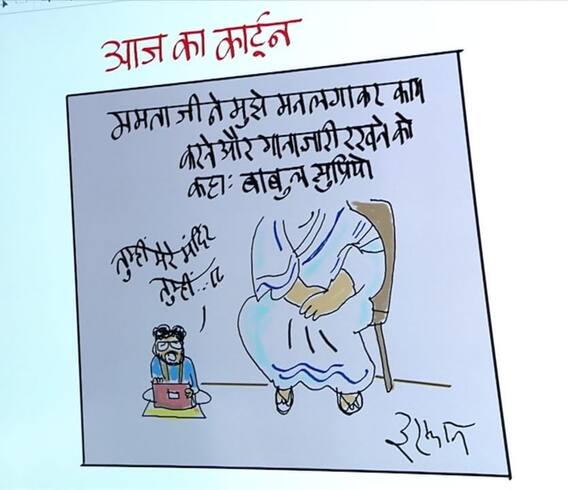 आज का कार्टून
ममता जी ने मुझे मन लगाकर काम
करने और गाना जारी रखने को
कहा: बाबुल सुप्रियो
तुम्हीं मेरे मंदिर
तुम्हीं...!!
इरफ़ान